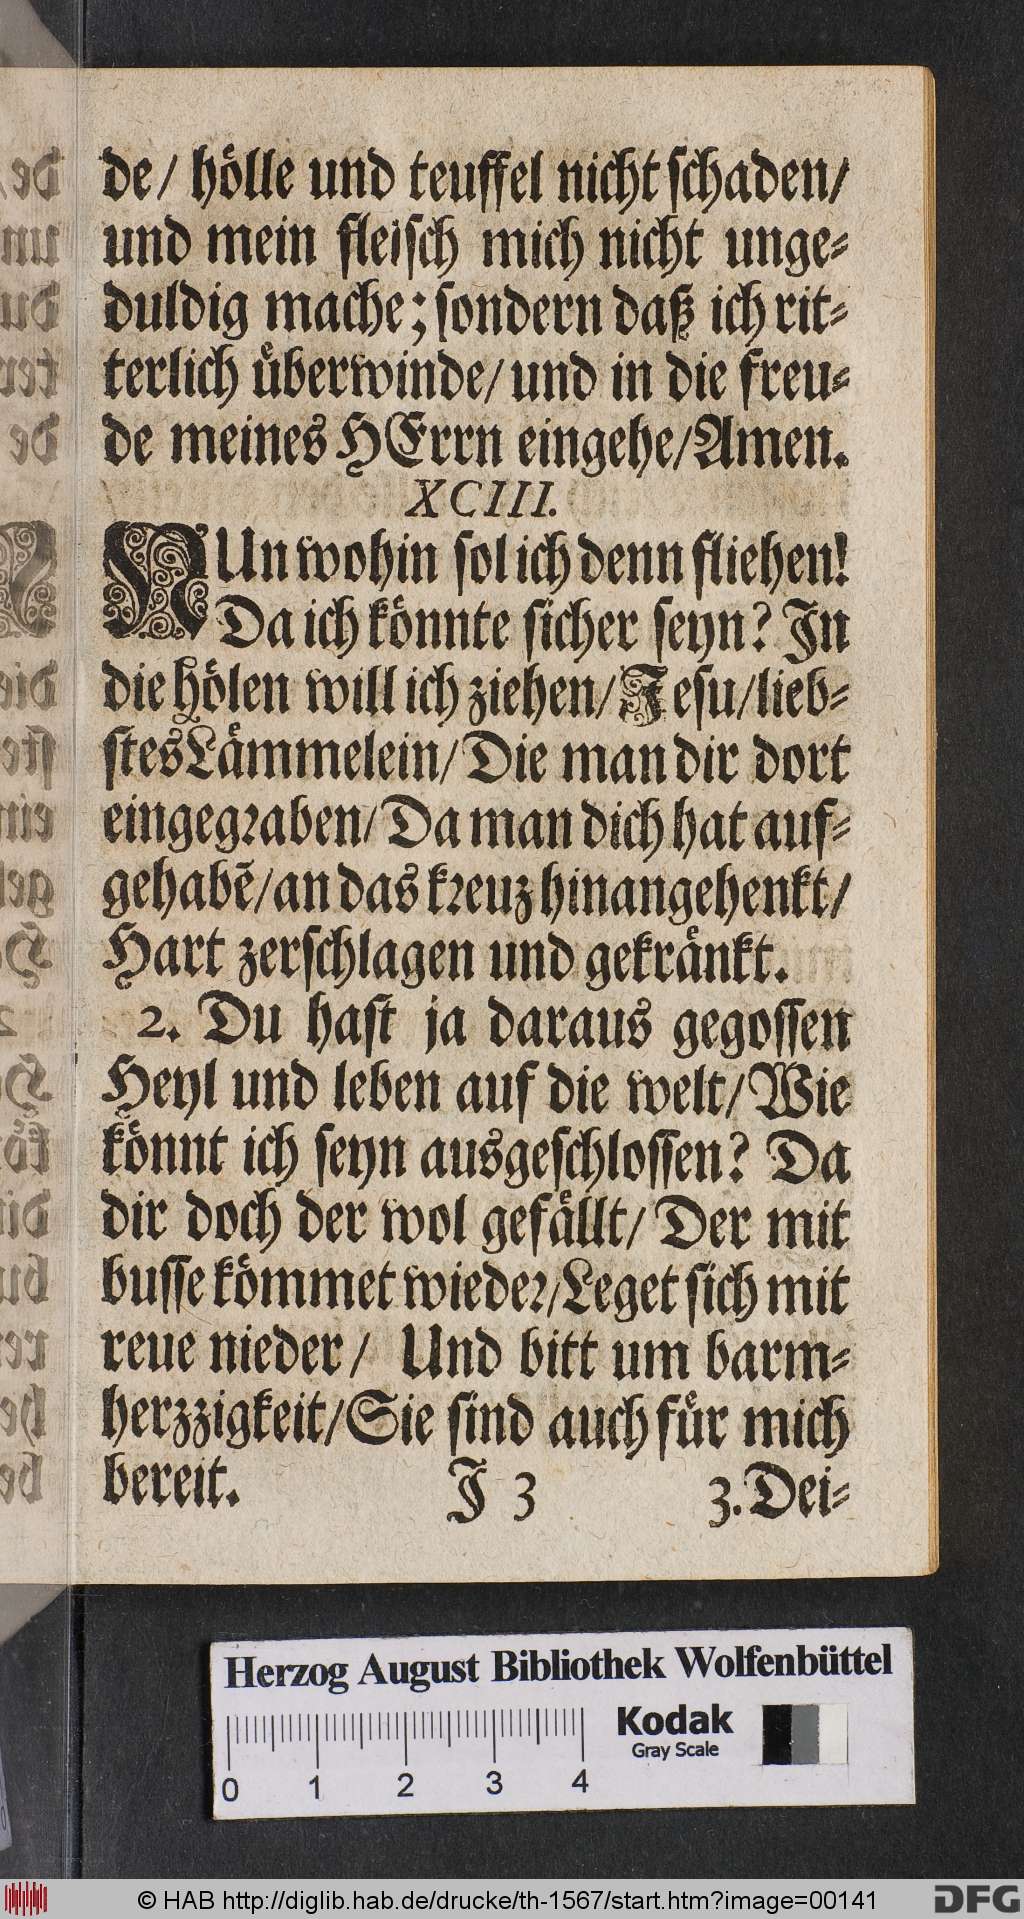 de/ hölle und teuffel nicht schaden/
und mein fleisch mich nicht unge-
duldig mache; sondern daß ich rit-
terlich überwinde/ und in die freu-
de meines HErrn eingehe/ Amen.
XCIII.
NUn wohin sol ich denn fliehen!
Da ich könnte sicher seyn? In
die hölen will ich ziehen/ Jesu/ lieb-
stes Lämmelein/ Die man dir dort
eingegraben/ Da man dich hat auf-
gehabẽ/ an das kreuz hinangehenkt/
Hart zerschlagen und gekränkt.
2. Du hast ja daraus gegossen
Heyl und leben auf die welt/ Wie
könnt ich seyn ausgeschlossen? Da
dir doch der wol gefällt/ Der mit
busse kömmet wieder/ Leget sich mit
reue nieder/ Und bitt um barm-
herzzigkeit/ Sie sind auch für mich
bereit.
J 3 3. Dei-
Herzog August Bibliothek Wolfenbüttel
Kodak
Gray Scale
0 1 2 3 4
© HAB http://diglib.hab.de/drucke/th-1567/start.htm?image=00141
DFG